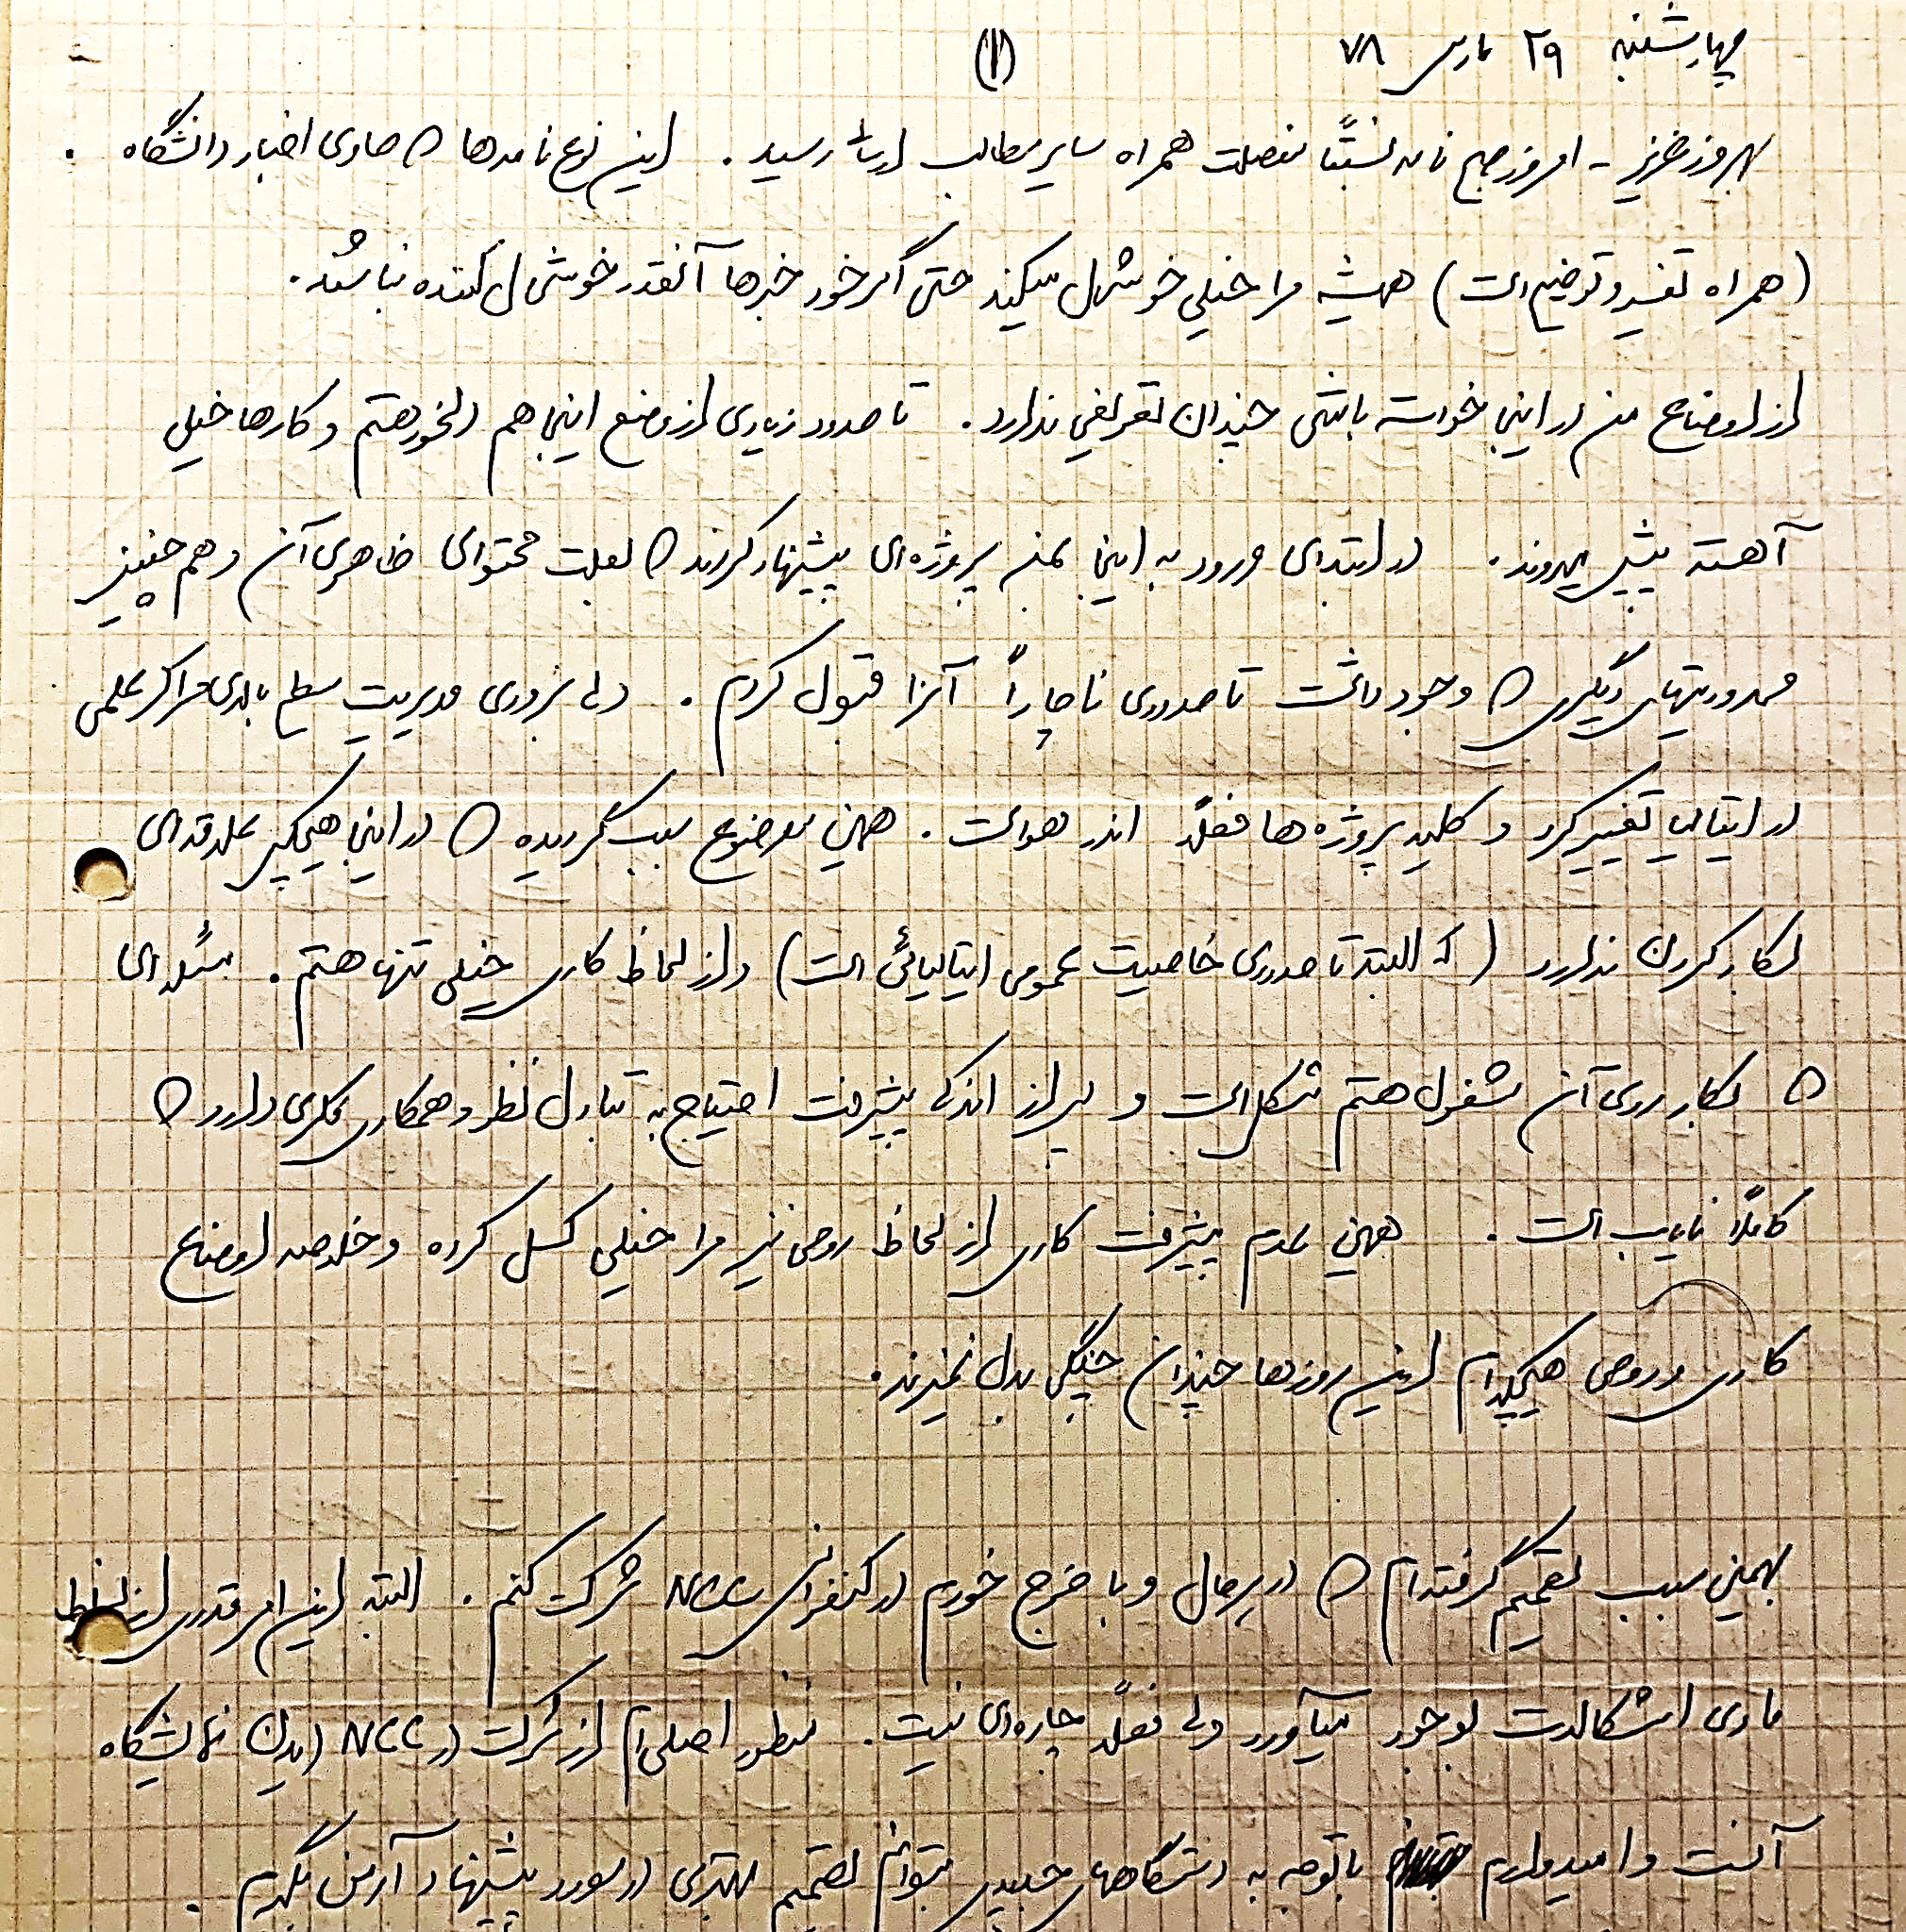 چهارشنبه ۲۹ مارس ۷۸ (۱)
بهروز عزیز - امروز صبح نامه نسبتاً مفصلت همراه سایر مطالب ارسالی رسید. این نوع نامه‌ها که حاوی اخبار دانشگاه
(همراه تفسیر و توضیح است) همیشه مرا خیلی خوشحال میکند حتی اگر خود خبرها آنقدر خوشحال کننده نباشند.
از اوضاع من در اینجا خواسته باشی چندان تعریفی ندارد. تا حدود زیادی از وضع اینجا هم دلخور هستم و کارها خیلی
آهسته پیش میروند. در ابتدای ورود به اینجا بمن پروژه‌ای پیشنهاد کردند که بعلت محتوای ظاهری آن و هم چنین
محدودیتهای دیگری که وجود داشت تا حدودی ناچاراً آنرا قبول کردم. ولی بزودی مدیریت سطح بالای مراکز علمی
در ایتالیا تغییر کرد و کلیه پروژه‌ها فعلاً اندر هواست. همین موضوع سبب گردیده که در اینجا هیچکس علاقه‌ای
بکار کردن ندارد (که البته تا حدودی خاصیت عمومی ایتالیائی است) و از لحاظ کاری خیلی تنها هستم. مسئله‌ای
که بکار روی آن مشغول هستم مشکل است و برای اندکی پیشرفت احتیاج به تبادل نظر و همکاری فکری دارد که
کاملاً نایاب است. همین عدم پیشرفت کاری از لحاظ روحی نیز مرا خیلی کسل کرده و خلاصه اوضاع
کاری و روحی هیچکدام این روزها چندان چنگی بدل نمیزند.
بهمین سبب تصمیم گرفته‌ام که در هر حال و با خرج خودم در کنفرانس NCC شرکت کنم. البته این امر قدری از لحاظ
مادی اشکالات بوجود میآورد ولی فعلاً چاره‌ای نیست. منظور اصلی‌ام از شرکت در NCC دیدن نمایشگاه
آنست و امیدوارم با توجه به دستگاههای جدید بتوانم تصمیم بهتری در مورد پیشنهاد آرمن بگیرم.